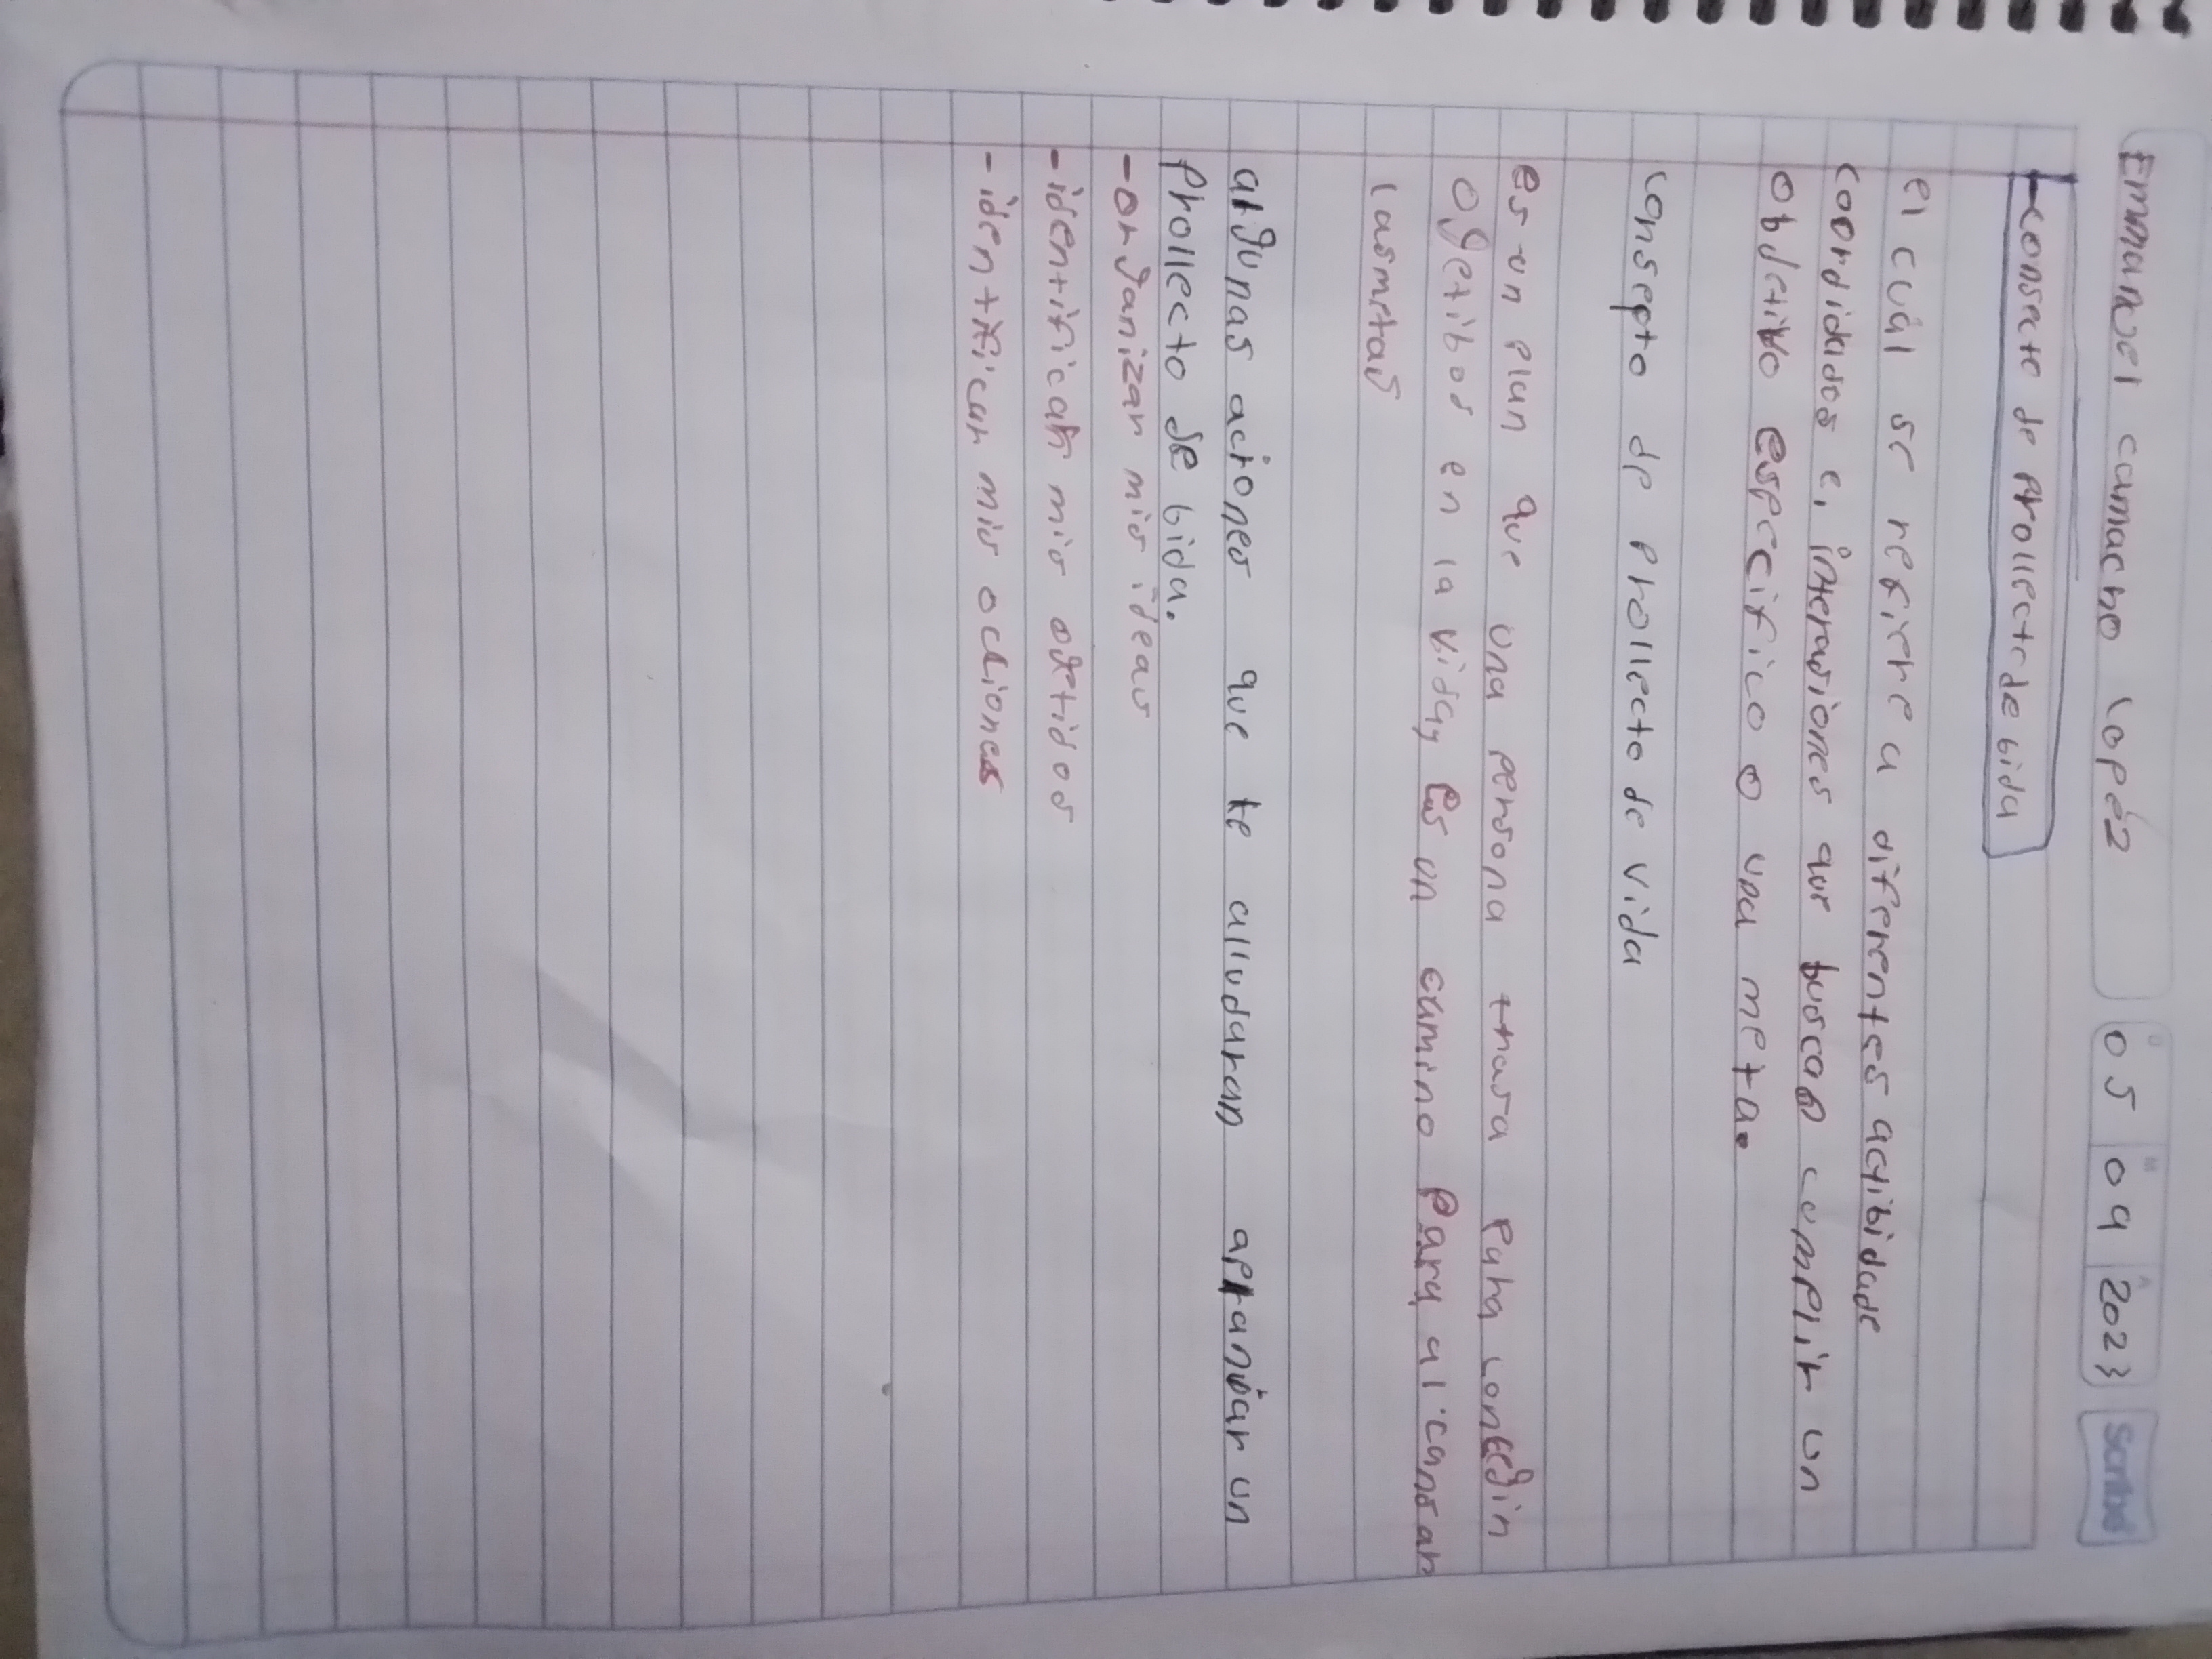 Emmanuel camacho lopéz
D M A
05 09 2023
Scribe
consecto de prollecto de bida
el cual se refiere a diferentes actibidade
coordidados e, interasiones que buscan cumplir un
objetivo especifico o una meta.
consepto de prollecto de vida
es un plan que una persona trasa para consegir
ogetibos en la viday es un camino Para alcansar
lasmetas
algunas aciones que te alludaran aplanear un
prollecto de bida.
- organizar mis ideas
- identificar mis
- identificar mis ocliones